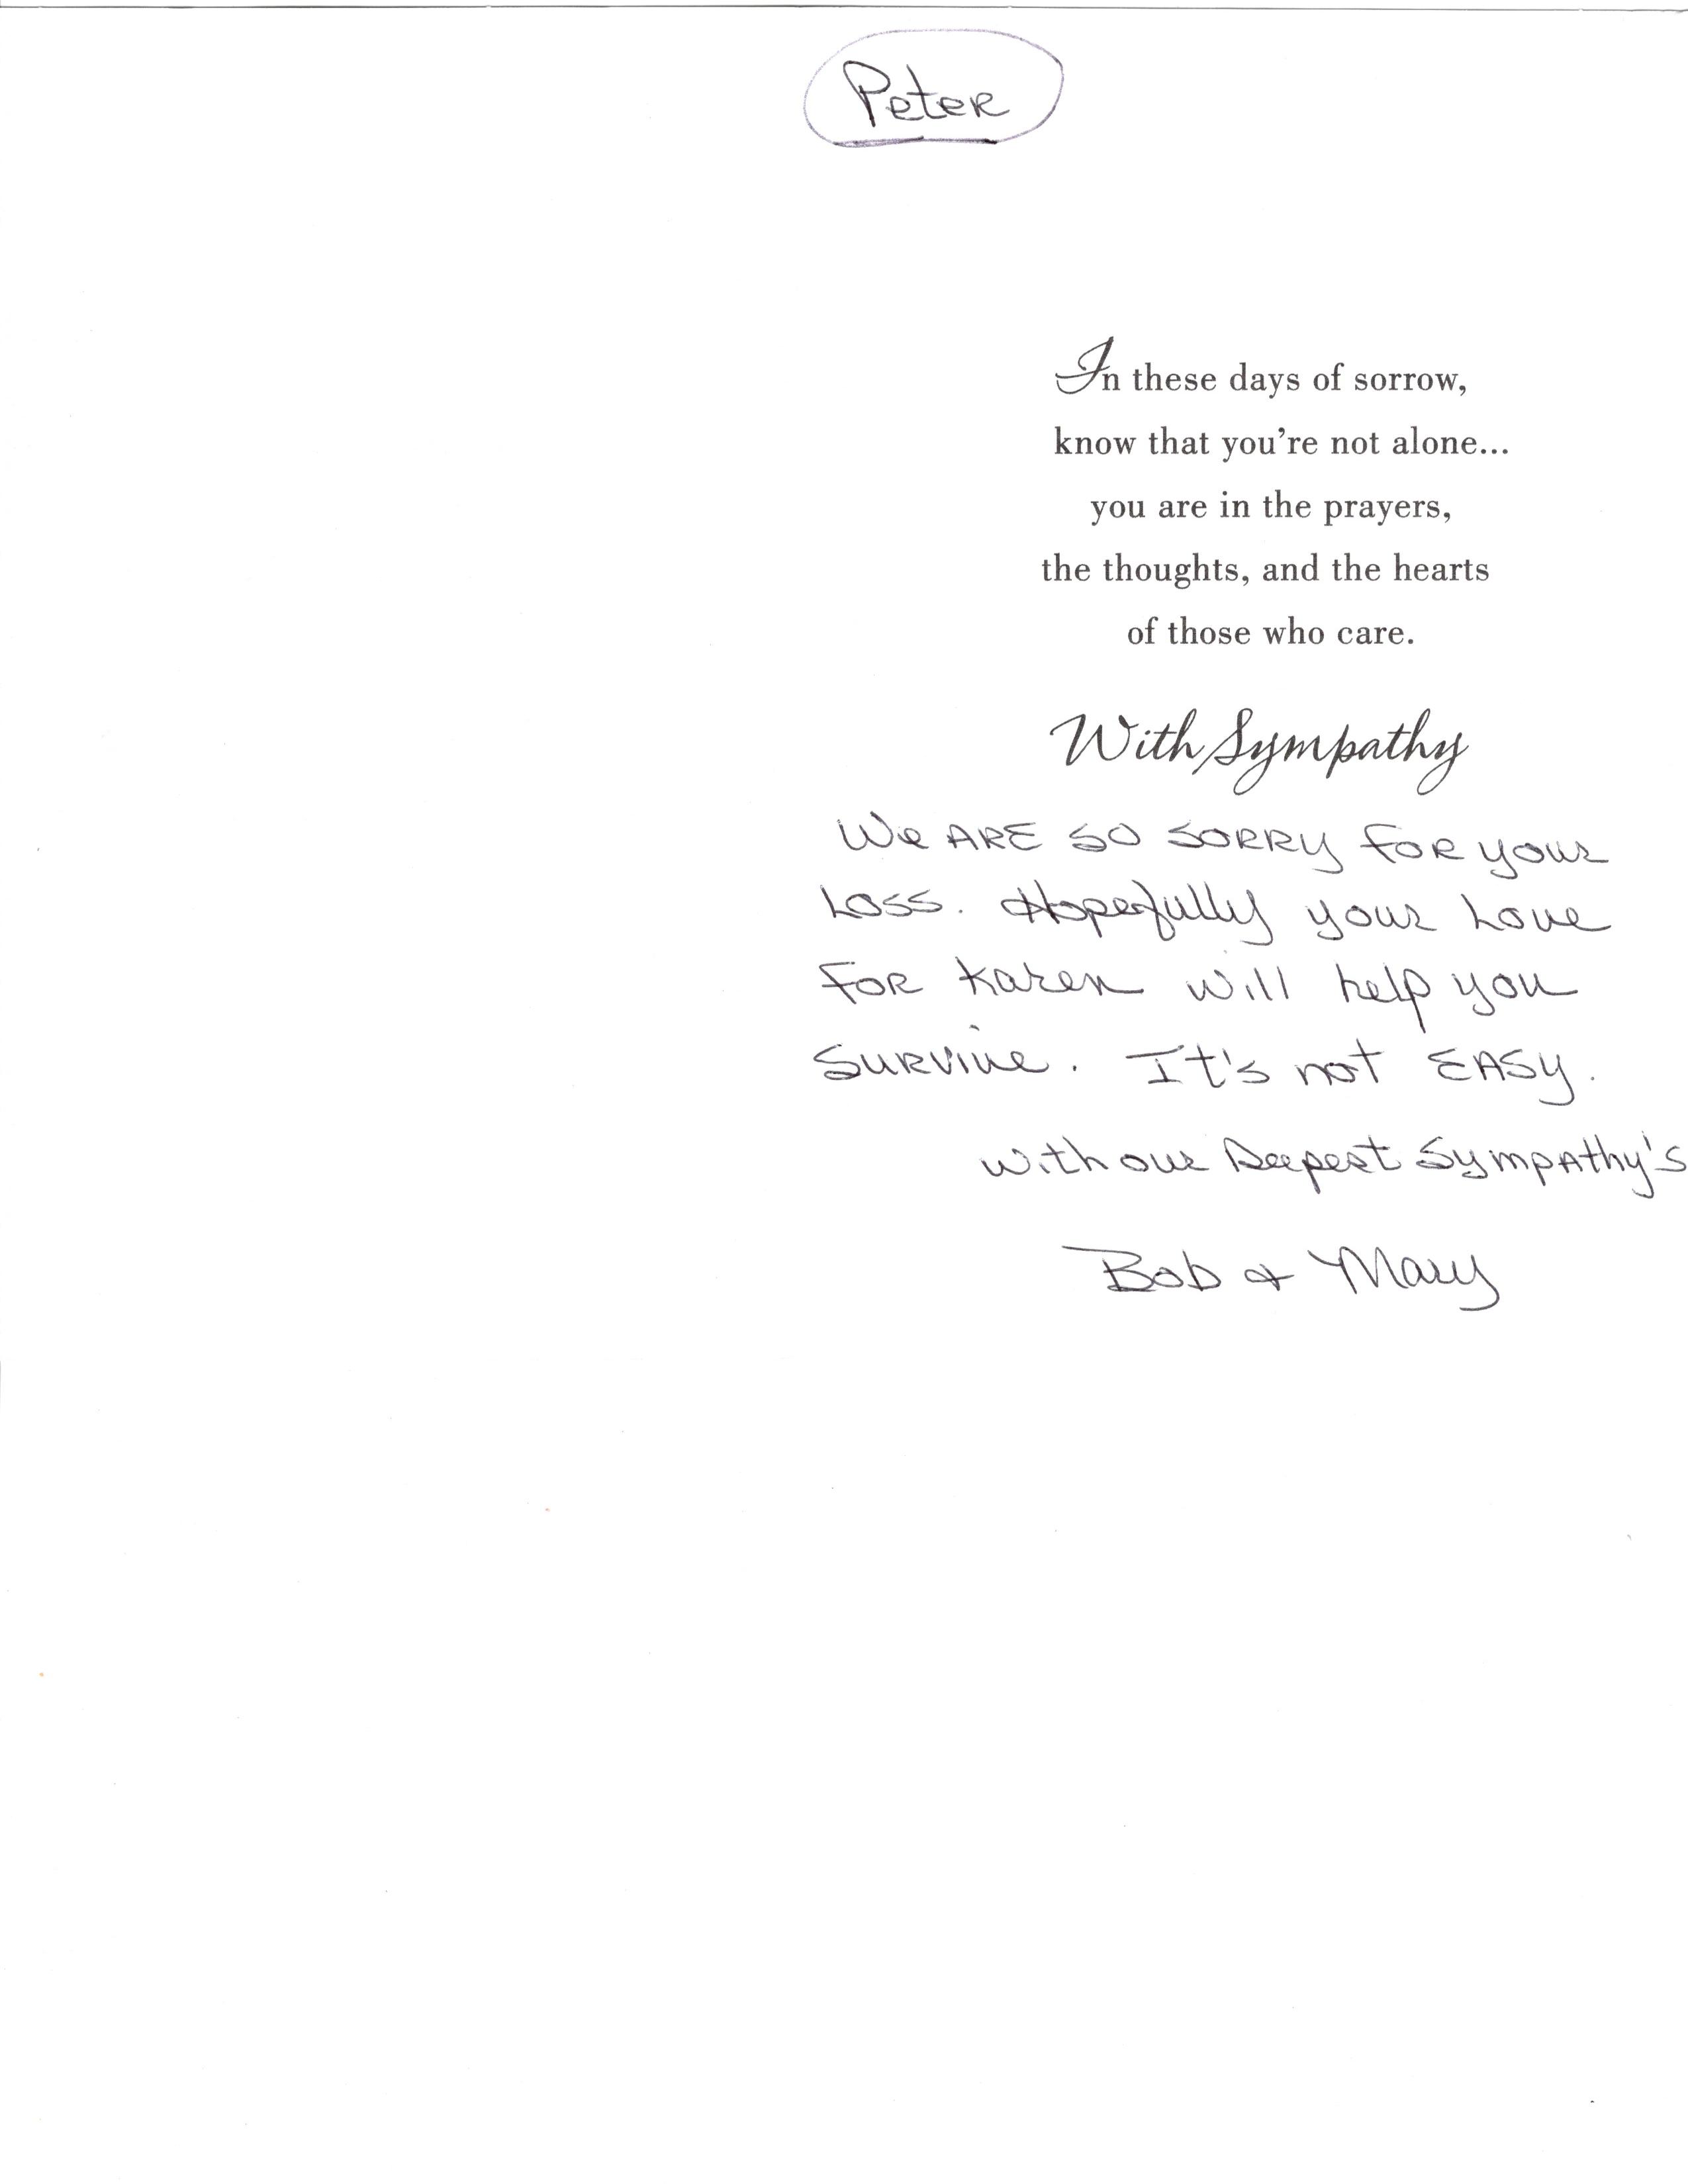 Peter
In these days of sorrow,
know that you're not alone...
you are in the prayers,
the thoughts, and the hearts
of those who care.
With Sympathy
We ARE so SORRY FOR your
Loss. Hopefully your Love
FOR Karen will help you
SURVive. It's not EASy.
with our Deepest Sympathy's
Bob & Mary